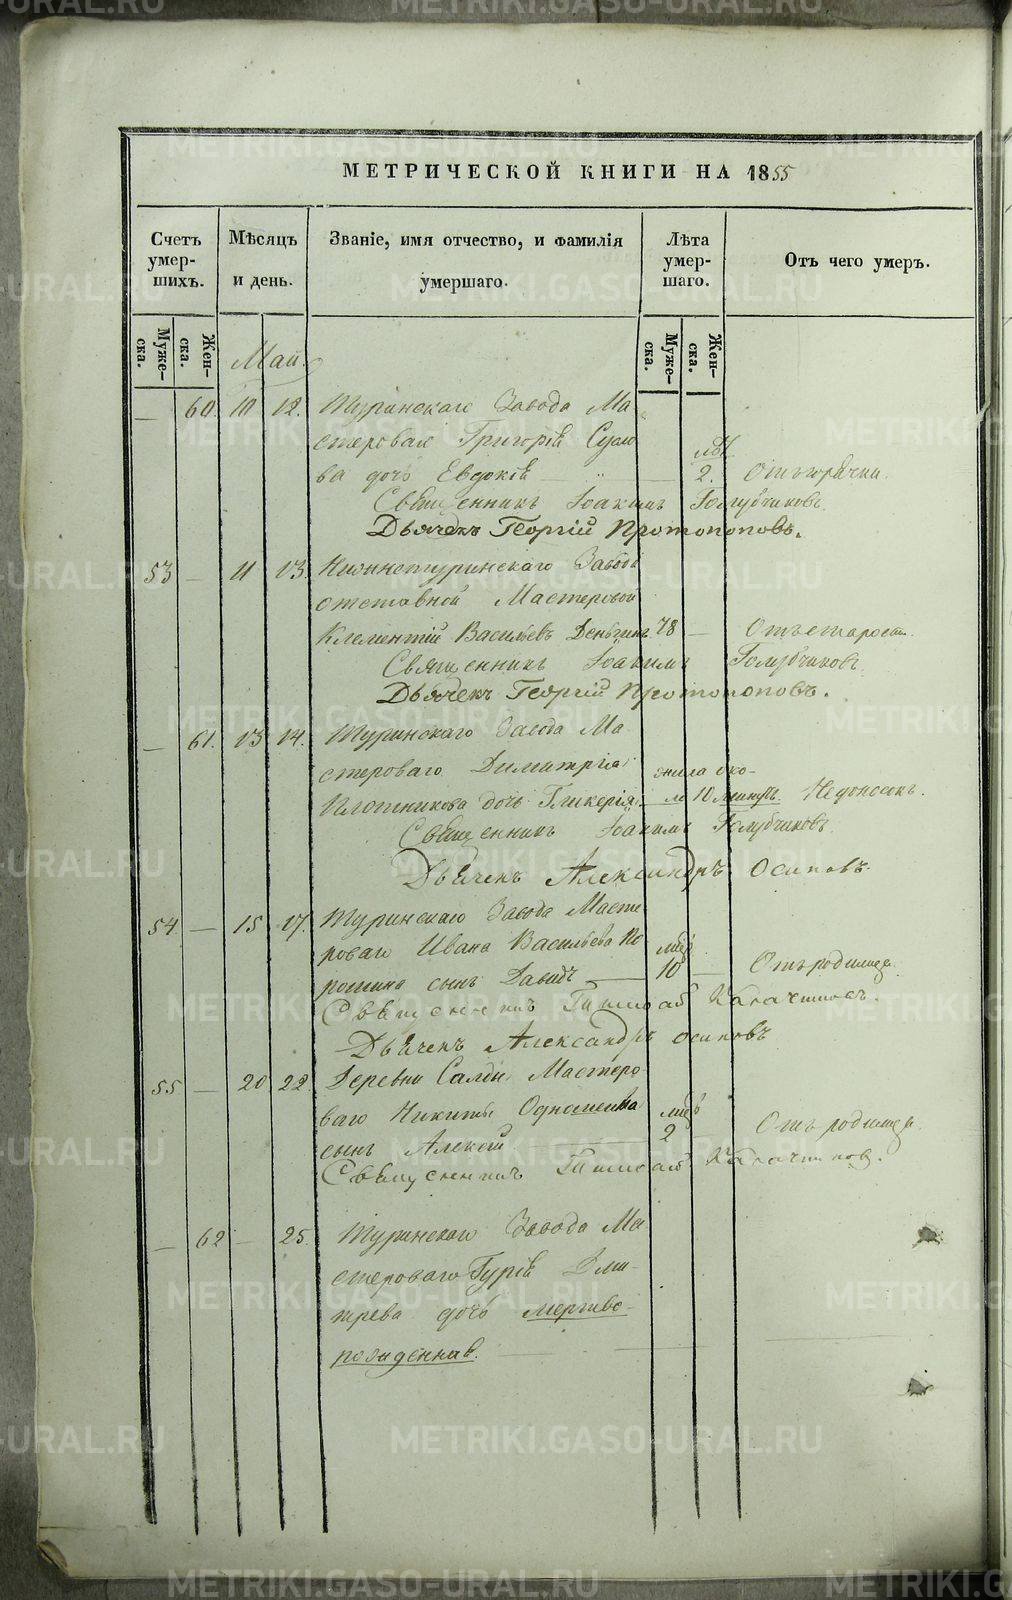 МЕТРИЧЕСКОЙ КНИГИ НА 1855
Счетъ умер-шихъ. Мѣсяцъ и день. Званіе, имя отчество, и фамилія умершаго. Лѣта умер-шаго. Отъ чего умеръ.
Муже-ска. Жен-ска. Муже-ска. Жен-ска.
Май.
— 60. 10 12. Туринскаго Завода Ма
стероваго Григорія Сусло
ва дочь Евдокія — 2. Отъ горячки.
Священникъ Іоакимъ Голубчиковъ.
Дьячекъ Георгій Протопоповъ.
53 — 11 13. Нижнетуринскаго Завода
отставной Мастеровой
Клементій Васильевъ 78 — Отъ старости.
Священникъ Іоакимъ Голубчиковъ.
Дьячекъ Георгій Протопоповъ.
— 61. 13 14. Туринскаго Завода Ма
стероваго Димитрія жила око-
Плотникова дочь Гликерія — ло 10 минутъ. Недоносокъ.
Священникъ Іоакимъ Голубчиковъ.
Дьячекъ Александръ Осиповъ.
54 — 15 17. Туринскаго Завода Масте
роваго Ивана Васильева По
сынъ Давидъ — 10 — Отъ родимца.
Священникъ
Дьячекъ Александръ Осиповъ
55 — 20 22. Деревни Салды, Мастеро
ваго Никиты
сынъ Алексѣй — 2 Отъ родимца.
Священникъ
— 62 — 25. Туринскаго Завода Ма
стероваго Гурія Дми-
трева дочь мертво-
рожденная.
METRIKI.GASO-URAL.RU